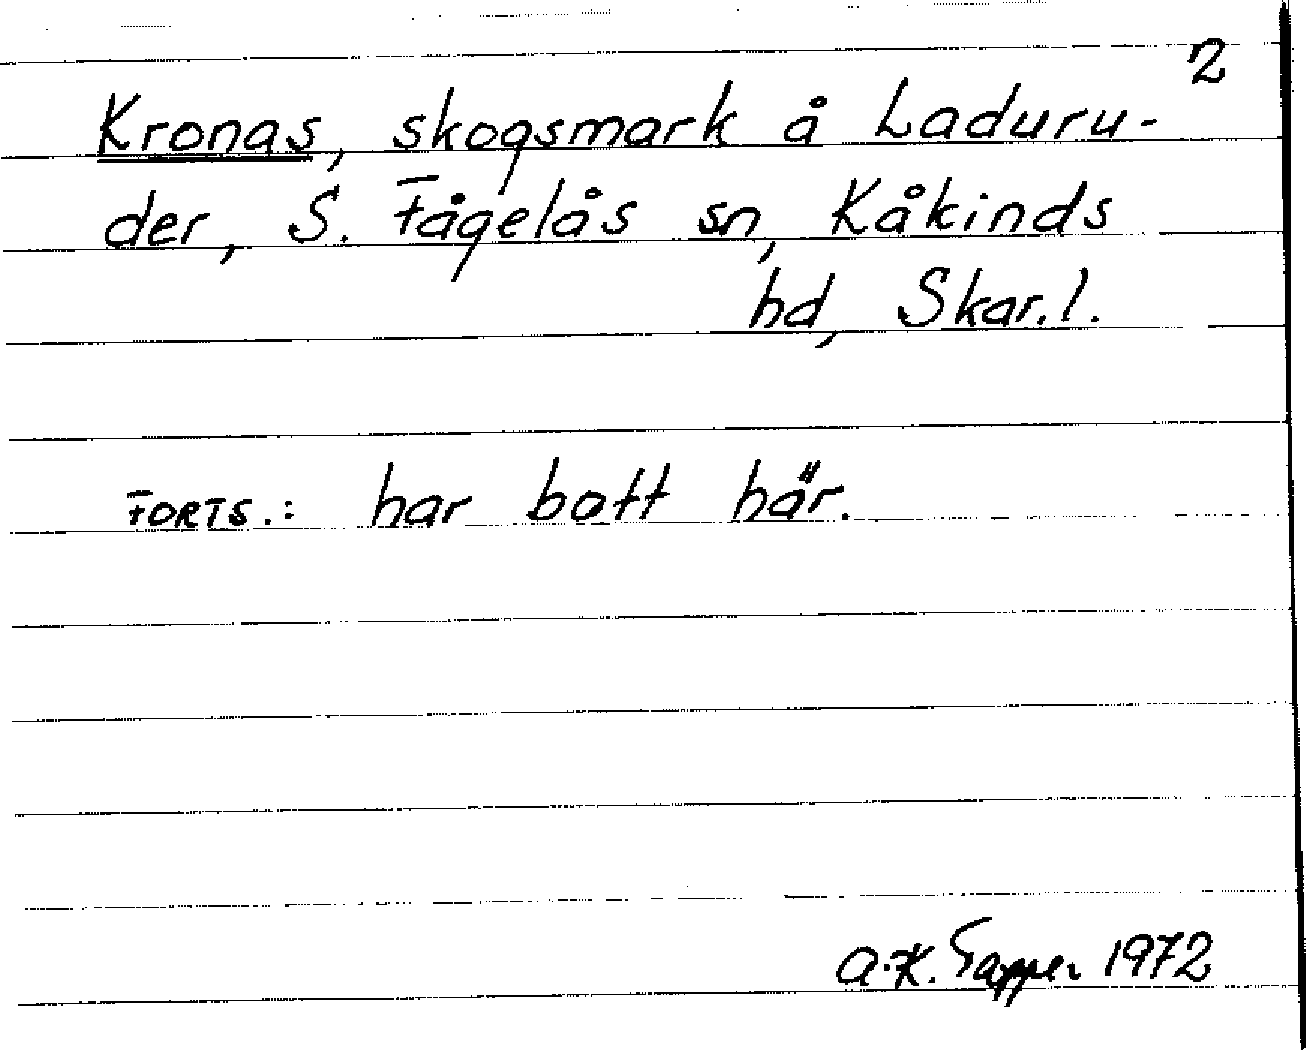 2
Kronas, skogsmark å Laduru-
der, S. Fågelås sn, Kåkinds
hd, Skar.l.
FORTS.: har bott här.
A.-K. Tapper 1972